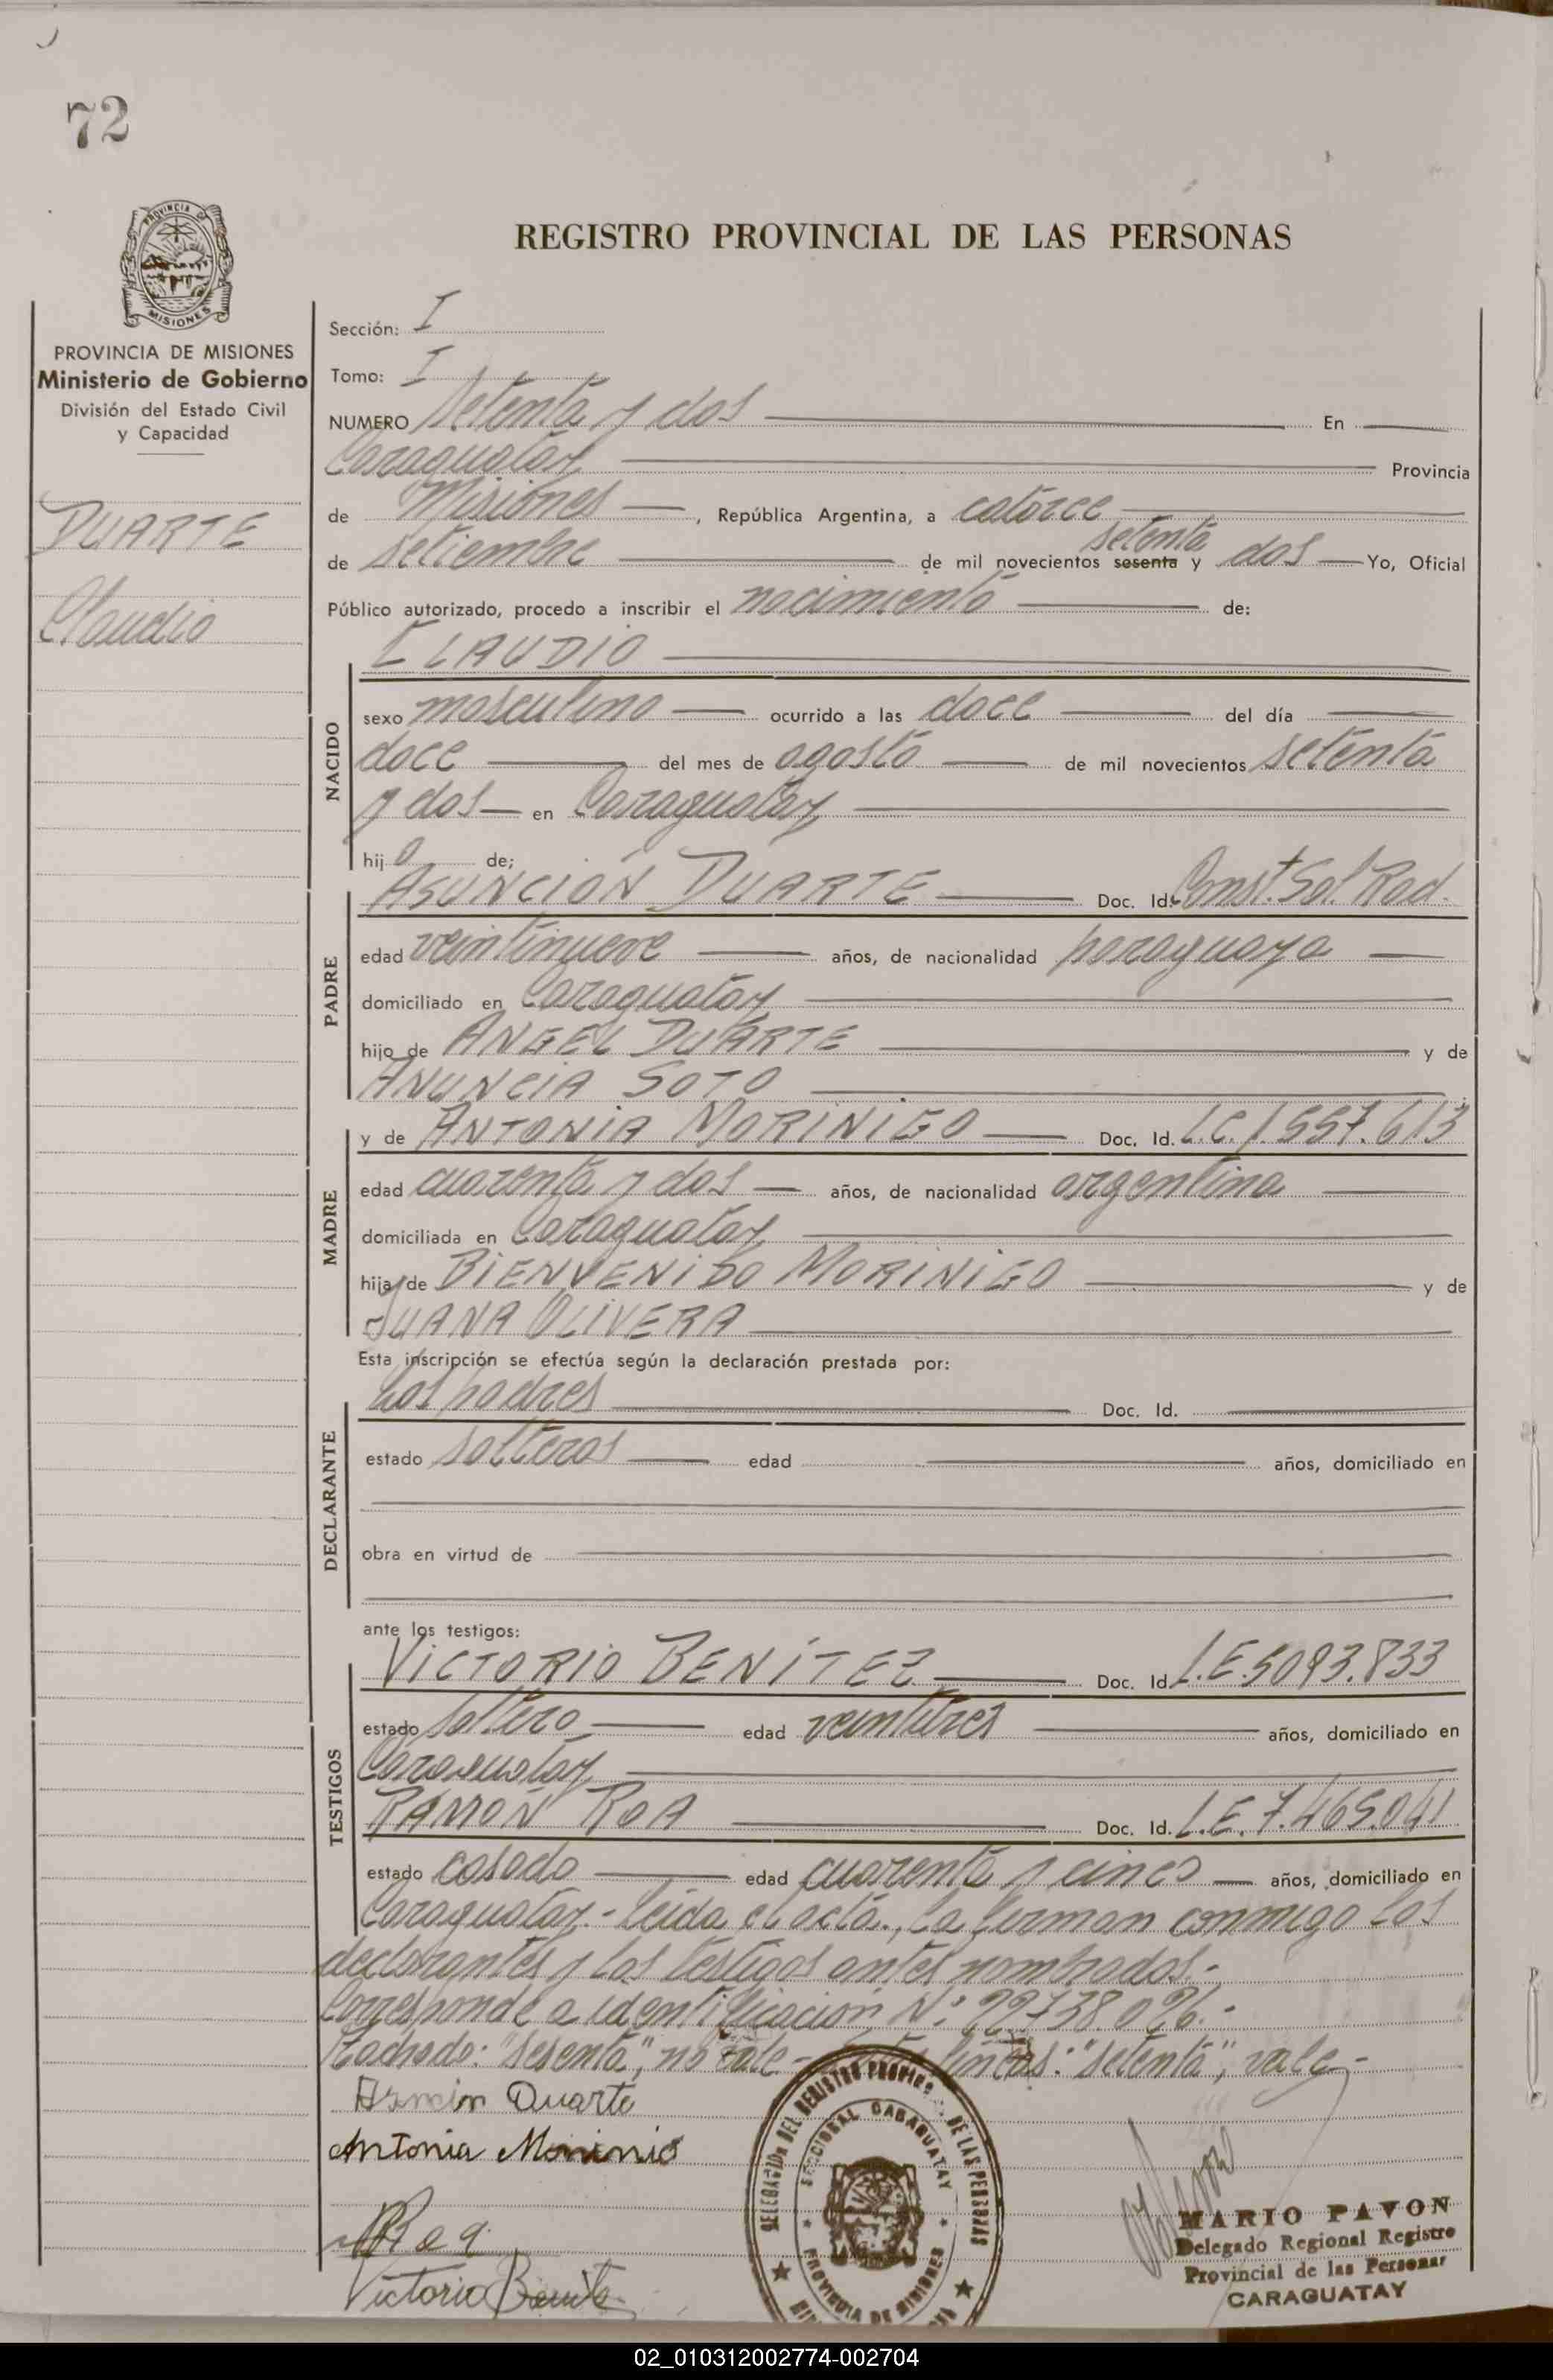 72
PROVINCIA DE
MISIONES
PROVINCIA DE MISIONES
Ministerio de Gobierno
División del Estado Civil
y Capacidad
DUARTE
Claudio
REGISTRO PROVINCIAL DE LAS PERSONAS
Sección: I
Tomo: I
NUMERO Setenta y dos En
Caraguatay Provincia
de Misiones, República Argentina, a catorce
setenta
de Setiembre de mil novecientos sesenta y dos Yo, Oficial
Público autorizado, procedo a inscribir el nacimiento de:
CLAUDIO
NACIDO
sexo masculino ocurrido a las doce del día
doce del mes de agosto de mil novecientos setenta
y dos en Caraguatay
hijo de;
PADRE
ASUNCIÓN DUARTE Doc. Id. Const. Sol. Rad.
edad veintinueve años, de nacionalidad paraguaya
domiciliado en Caraguatay
hijo de ANGEL DUARTE y de
ANUNCIA SOTO
MADRE
y de ANTONIA MORINIGO Doc. Id. L.C. 1.557.613
edad cuarenta y dos años, de nacionalidad argentina
domiciliada en Caraguatay
hija de BIENVENIDO MORINIGO y de
JUANA OLIVERA
Esta inscripción se efectúa según la declaración prestada por:
DECLARANTE
Los padres Doc. Id.
estado solteros edad años, domiciliado en
obra en virtud de
ante los testigos:
TESTIGOS
VICTORIO BENÍTEZ Doc. Id. L.E. 5093.833
estado soltero edad veintitres años, domiciliado en
Caraguatay
RAMÓN ROA Doc. Id. L.E. 7.465.041
estado casado edad cuarenta y cinco años, domiciliado en
Caraguatay.- Leida el acta., la firman conmigo los
declarantes y los testigos antes nombrados.-
Corresponde a identificación Nº: 22.738.026.-
Tachado: "sesenta", no vale - líneas: "setenta", vale.-
Duarte
Antonia Morinio
Roa
Victorio Benite
DELEGACIÓN DEL REGISTRO PROVINCIAL DE LAS PERSONAS
SECCIONAL CARAGUATAY
PROVINCIA DE MISIONES
MARIO PAVON
Delegado Regional Registro
Provincial de las Personas
CARAGUATAY
02_010312002774-002704